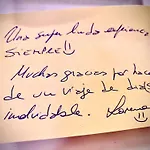 Una super linda experiencia
SIEMPRE
Muchas gracias por hace
de un viaje de dias
inolvidable.